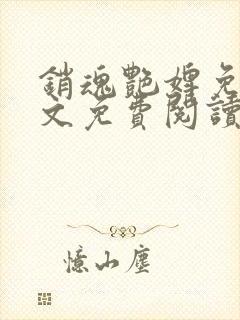 銷魂艷婢免
文免費閱讀
憶山塵